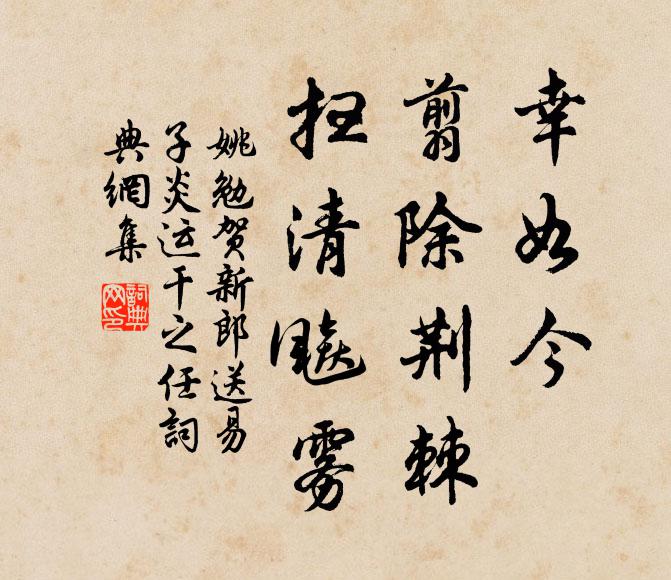 幸如今
翦除荆棘
扫清飚雾
姚勉贺新郎送易
子炎运干之任詞
典網集
詞典
网印